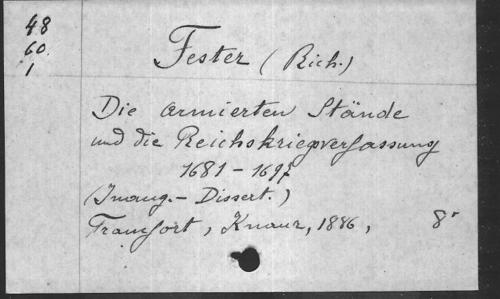 48
60.
1
Fester (Rich.)
Die armierten Stände
und die Reichskriegsverfassung
1681 - 1697
(Inaug. - Dissert.)
Francfort, Knauer, 1886, 8º